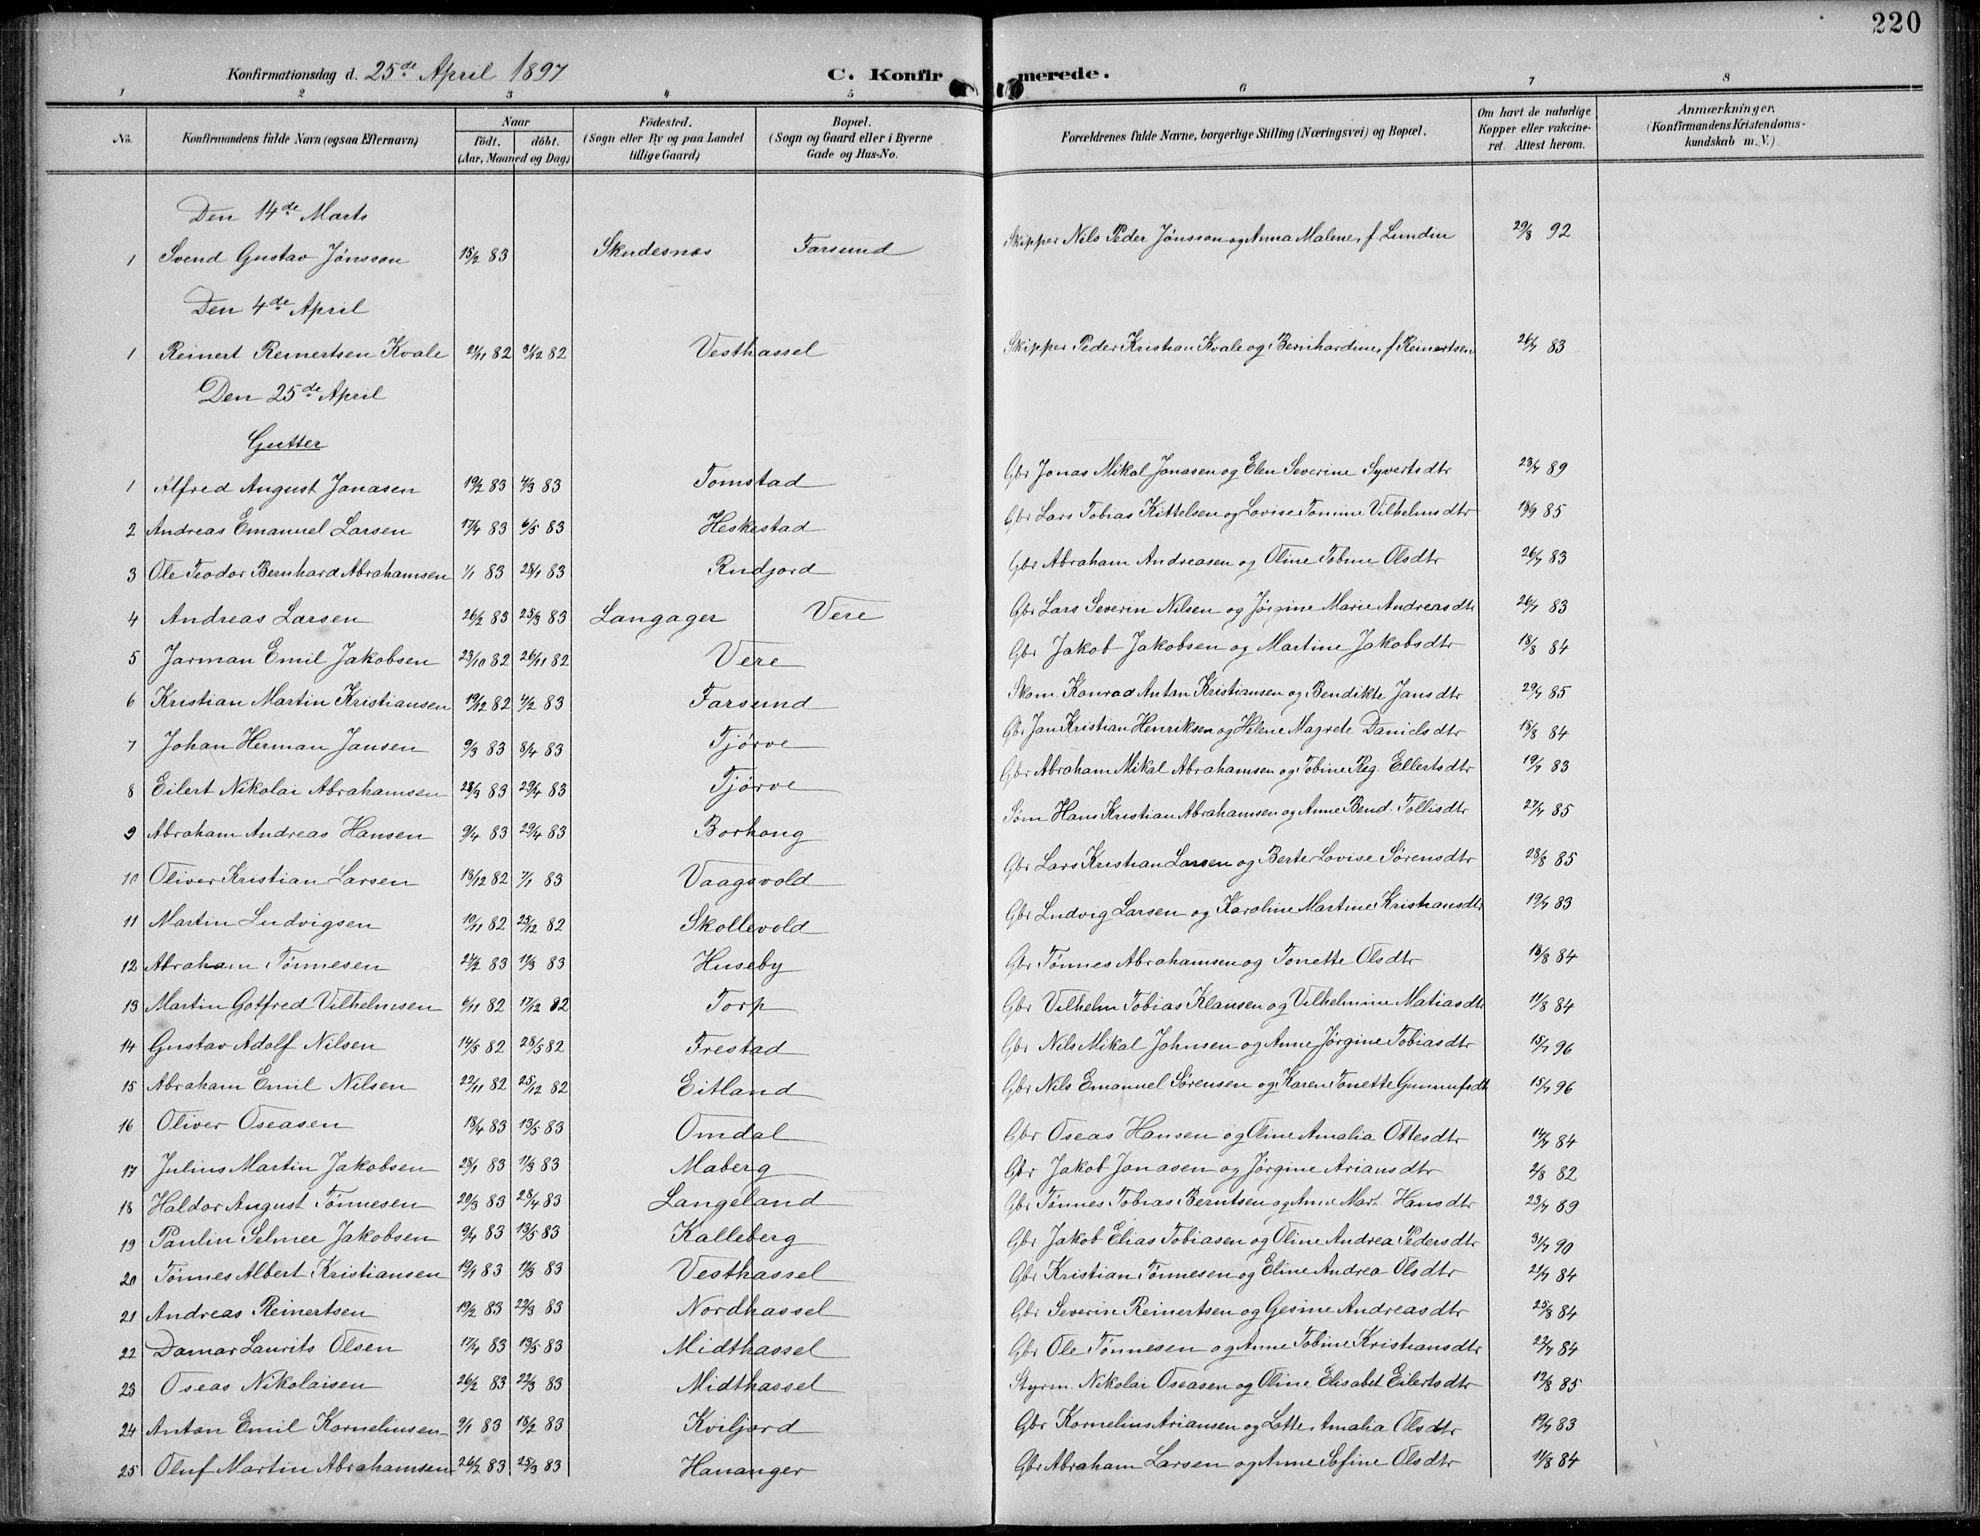 220
Konfirmationsdag d. 25de April 1897
C. Konfirmerede.
1 2 3 4 5 6 7 8
No.
Konfirmandens fulde Navn (ogsaa Efternavn)
Naar
födt. döbt.
(Aar, Maaned og Dag)
Födested.
(Sogn eller By og paa Landet
tillige Gaard)
Bopæl.
(Sogn og Gaard eller i Byerne
Gade og Hus-No.
Forældrenes fulde Navne, borgerlige Stilling (Næringsvei) og Bopæl.
Om havt de naturlige
Kopper eller vakcine-
ret. Attest herom.
Anmærkninger.
(Konfirmandens Kristendoms-
kundskab m. V.)
Den 14de Marts
1 Svend Gustav Jönsson 15/2 83 Skudesnæs Farsund Skipper Nils Peder Jönsson og Anna Malene, f. Lundin 29/8 92
Den 4de April
1 Reinert Reinertsen Kvale 21/11 82 31/12 82 Vesthassel Skipper Peder Kristian Kvale og Bernhardine, f. Reinertsen 26/7 83
Den 25de April
Gutter
1 Alfred August Jonasen 19/2 83 4/3 83 Tomstad Gbr Jonas Mikal Jonasen og Elen Severine Syvertsdtr 23/7 89
2 Andreas Emanuel Larsen 17/4 83 6/5 83 Heskestad Gbr Lars Tobias Kittelsen og Lovise Tomine Vilhelmsdtr 18/9 85
3 Ole Teodor Bernhard Abrahamsen 1/1 83 28/1 83 Rudjord Gbr Abraham Andreasen og Oline Tobine Olsdtr 26/7 83
4 Andreas Larsen 26/2 83 25/3 83 Langager Vere Gbr Lars Severin Nilsen og Jörgine Marie Andreasdtr 26/7 83
5 Jarman Emil Jakobsen 23/10 82 26/11 82 Vere Gbr Jakob Jakobsen og Martine Jakobsdtr 18/8 84
6 Kristian Martin Kristiansen 19/12 82 4/2 83 Farsund Skom. Konrad Antan Kristiansen og Bendikte Jansdtr 29/7 85
7 Johan Herman Jansen 9/3 83 8/4 83 Tjörve Gbr Jan Kristian Henriksen og Helene Magrete Danielsdtr 18/8 84
8 Eilert Nikolai Abrahamsen 28/3 83 29/4 83 Tjörve Gbr Abraham Mikal Abrahamsen og Tobine Reg. Ellertsdtr 19/7 83
9 Abraham Andreas Hansen 9/4 83 29/4 83 Borhoug Söm Hans Kristian Abrahamsen og Anne Bend. Tollisdtr 27/7 85
10 Oliver Kristian Larsen 13/12 82 7/1 83 Vaagsvold Gbr Lars Kristian Larsen og Berte Lovise Sörensdtr 28/8 85
11 Martin Ludvigsen 19/11 82 25/12 82 Skollevold Gbr Ludvig Larsen og Karoline Martine Kristiansdtr 19/7 83
12 Abraham Tönnesen 24/2 83 11/3 83 Huseby Gbr Tönnes Abrahamsen og Tonette Olsdtr 18/8 84
13 Martin Gotfred Vilhelmsen 6/11 82 17/12 82 Torp Gbr Vilhelm Tobias Klausen og Vilhelmine Matiasdtr 11/8 84
14 Gustav Adolf Nilsen 14/5 82 28/5 82 Frestad Gbr Nils Mikal Johnsen og Anne Jörgine Tobiasdtr 15/7 96
15 Abraham Emil Nilsen 22/11 82 25/12 82 Eitland Gbr Nils Emanuel Sörensen og Karen Tonette Gunnufsdtr 15/7 96
16 Oliver Oseasen 18/4 83 13/5 83 Omdal Gbr Oseas Hansen og Oline Amalia Ottesdtr 14/7 84
17 Julius Martin Jakobsen 28/1 83 11/3 83 Maberg Gbr Jakob Jonasen og Jörgine Ariansdtr 2/8 82
18 Haldor August Tönnesen 20/3 83 28/4 83 Langeland Gbr Tönnes Tobias Berntsen og Anne Mart. Hansdtr 23/7 89
19 Paulin Selmer Jakobsen 9/4 83 13/5 83 Kalleberg Gbr Jakob Elias Tobiasen og Oline Andrea Pedersdtr 31/7 90
20 Tönnes Albert Kristiansen 19/1 83 11/3 83 Vesthassel Gbr Kristian Tönnesen og Eline Andrea Olsdtr 21/7 84
21 Andreas Reinertsen 19/2 83 22/3 83 Nordhassel Gbr Severin Reinertsen og Gesine Andreasdtr 25/8 84
22 Damar Laurits Olsen 17/4 83 13/5 83 Midthassel Gbr Ole Tönnesen og Anne Tobine Kristiansdtr 22/7 84
23 Oseas Nikolaisen 26/2 83 22/3 83 Midthassel Styrm. Nikolai Oseasen og Oline Elisabet Eilertsdtr 12/8 85
24 Anton Emil Kornelinsen 9/1 83 18/2 83 Kviljord Gbr Kornelius Ariansen og Lotte Amalia Olsdtr 19/7 83
25 Oluf Martin Abrahamsen 26/2 83 25/3 83 Hananger Gbr Abraham Larsen og Anne Sofine Olsdtr 11/8 84